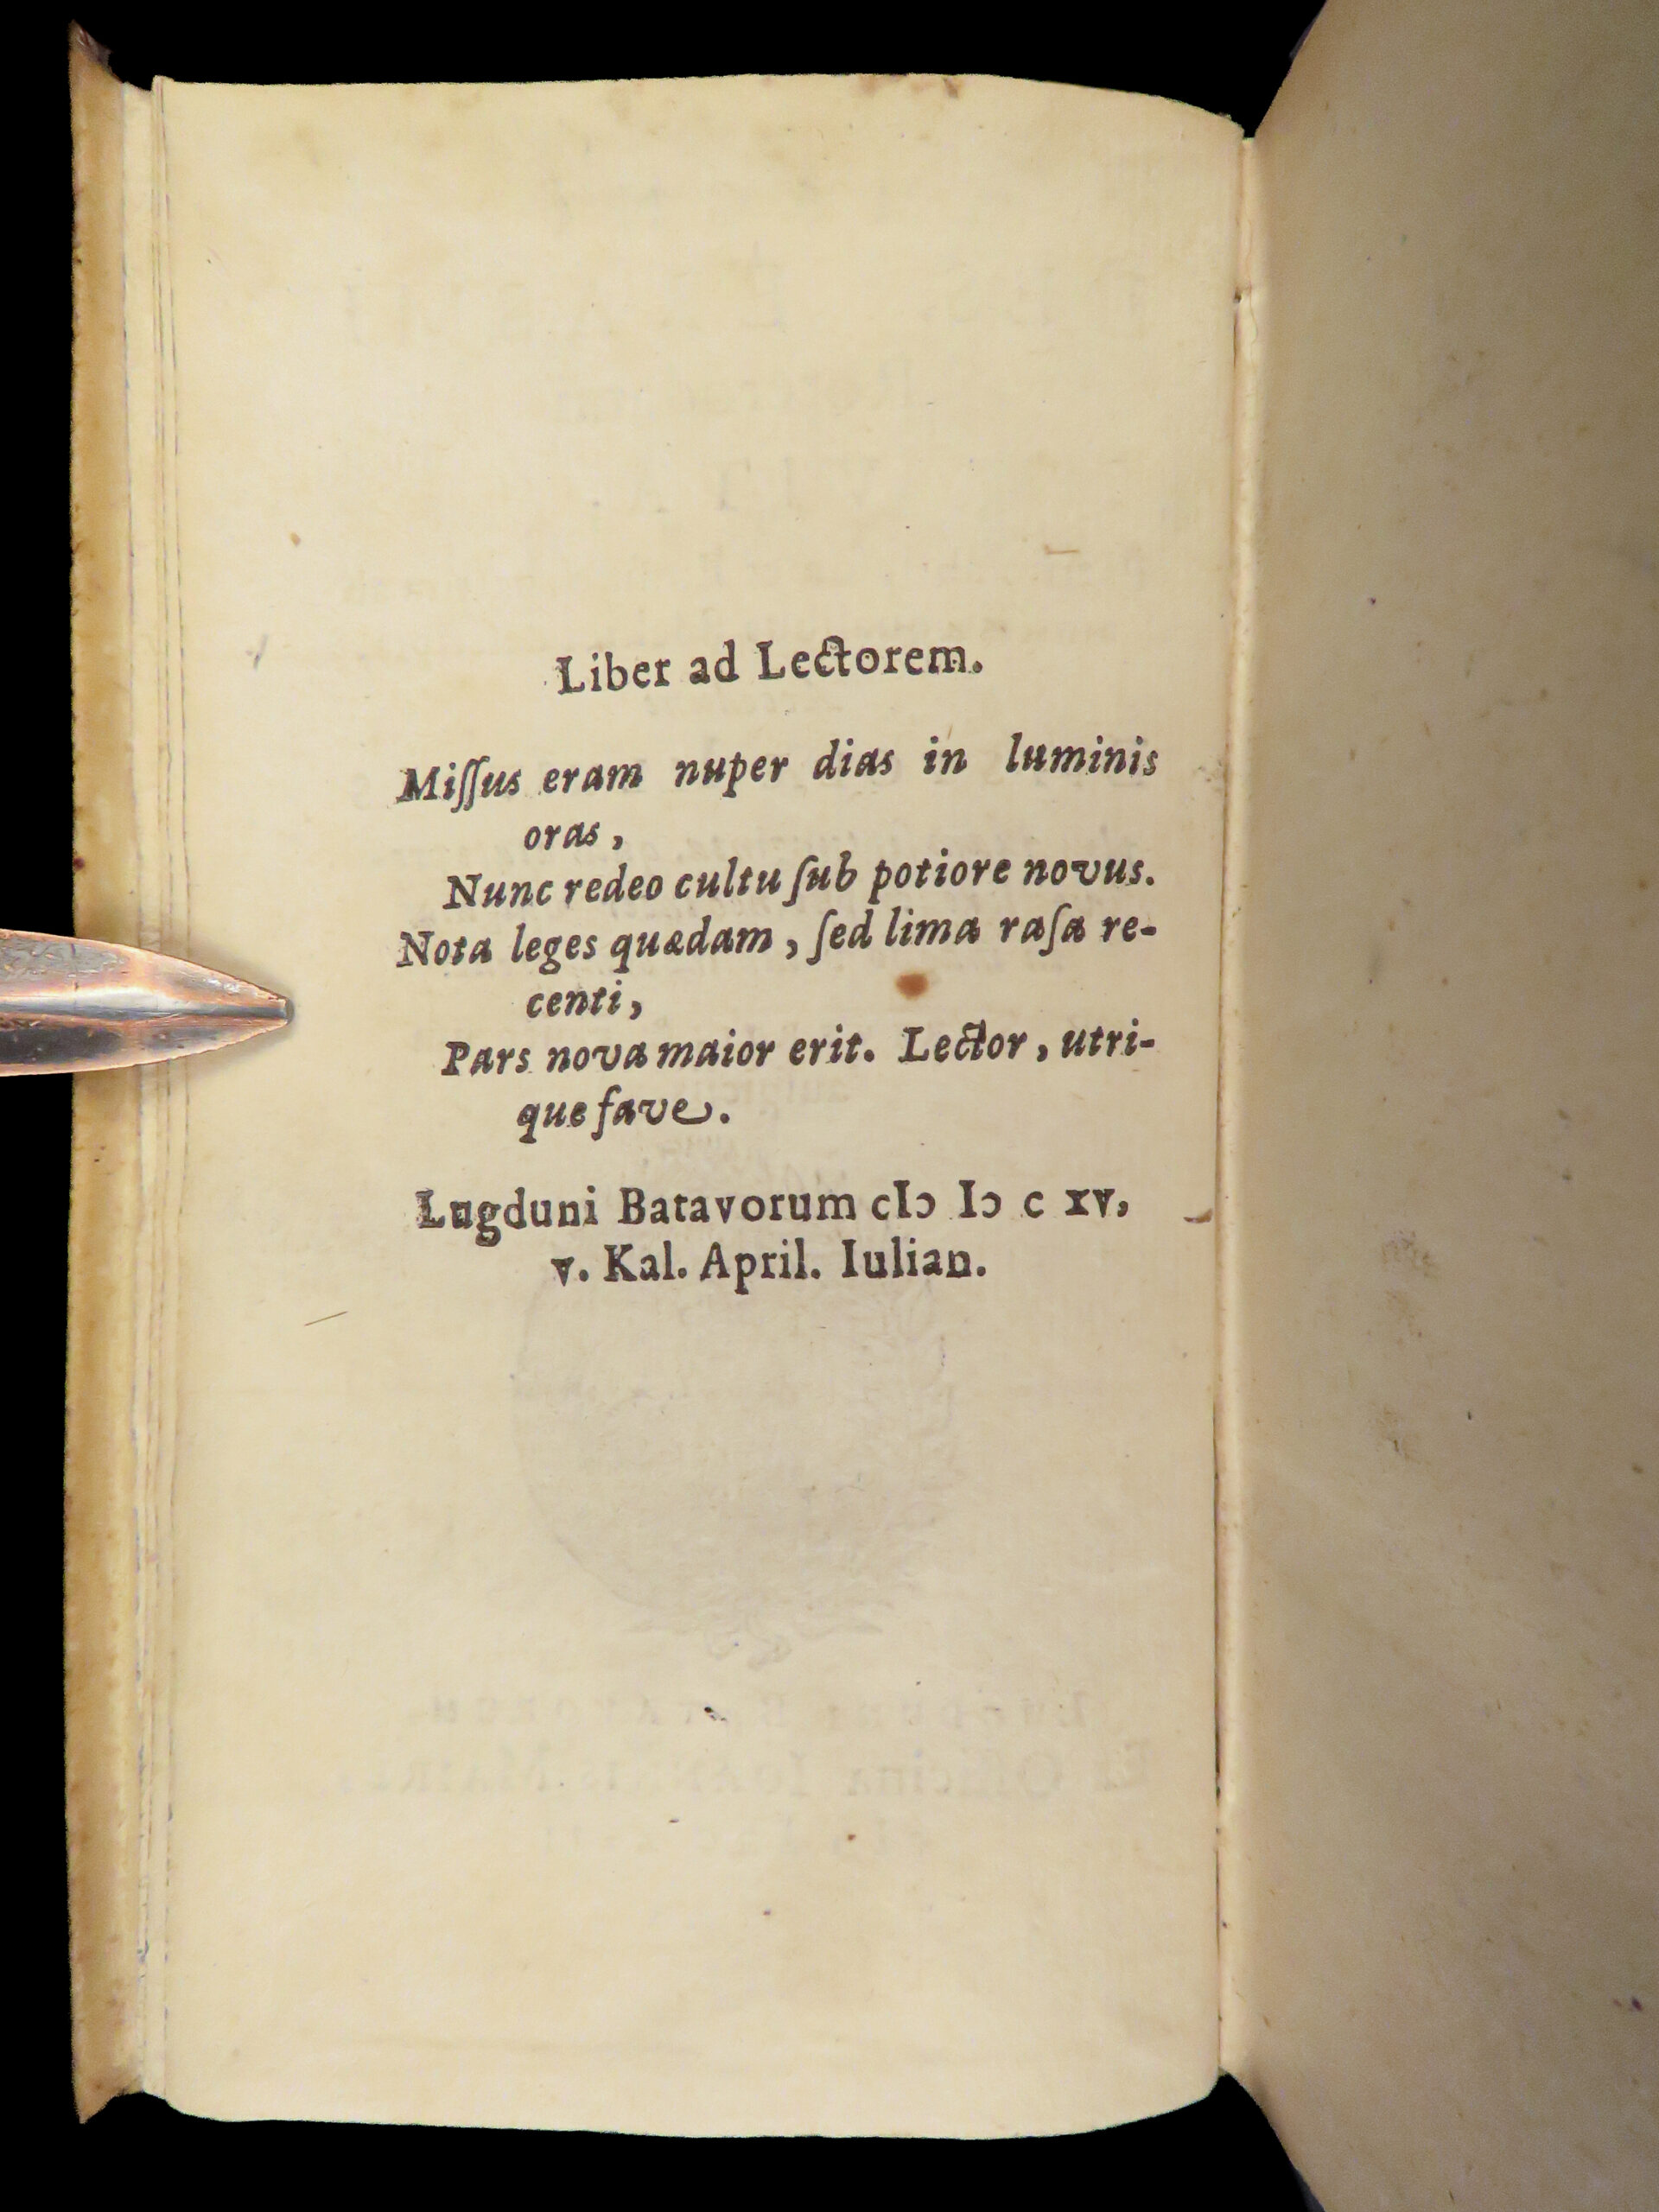 Liber ad Lectorem.
Miſſus eram nuper dias in luminis
oras,
Nunc redeo cultu ſub potiore novus.
Nota leges quædam, ſed lima raſa re-
centi,
Pars nova maior erit. Lector, utri-
que fave.
Lugduni Batavorum cIↄ Iↄ c xv,
v. Kal. April. Iulian.